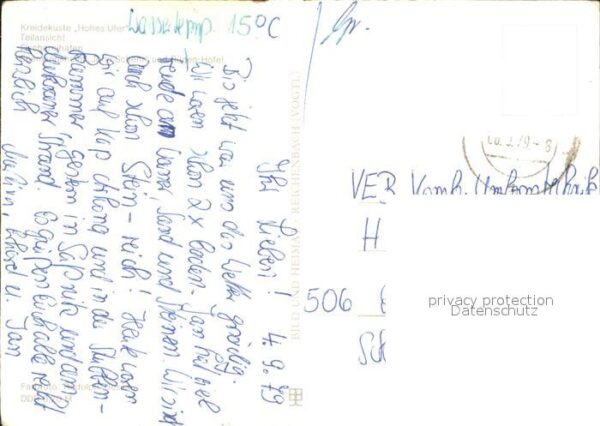 Kreideküste „Hohes Ufer
Teilansicht
Wassertemp. 15°C
Gr.
4.9.79
Ihr Lieben!
Bis jetzt war uns der Wetter gnädig.
Wir waren schon 2x baden. Jan hat viel
Freude am Wasser, Sand und Steinen. Wir sind
auch schon Stein-reich! Heute waren
wir auf Kap Arkona und in der Stubben-
kammer, gestern in Saßnitz und am
Strand. Es grüßen Euch alle recht
herzlich
u. Jan
BILD UND HEIMAT REICHENBACH (VOGTL)
79-8
VEB
H
506
privacy protection
Datenschutz